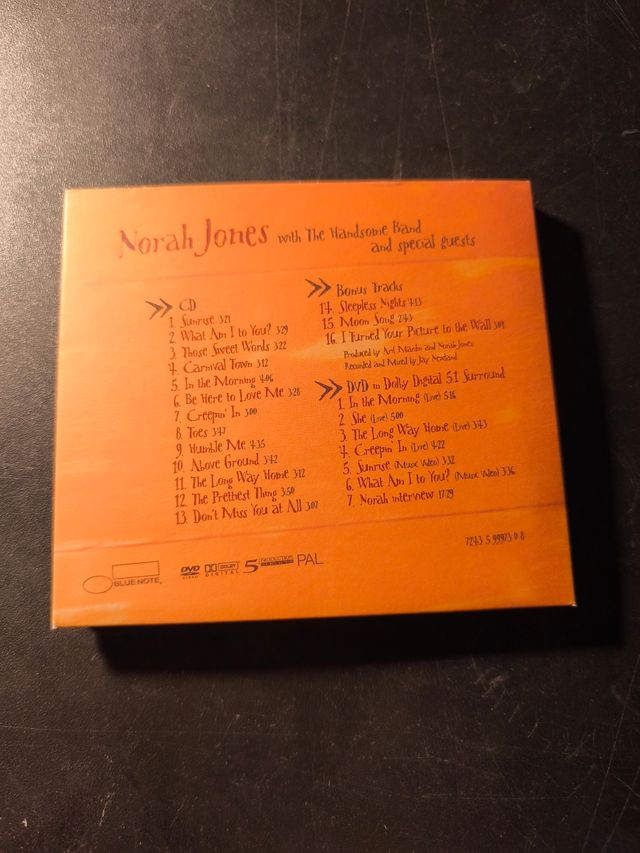 Norah Jones with The Handsome Band
and special guests
CD
1. Sunrise 3:21
2. What Am I to You? 3:29
3. Those Sweet Words 3:22
4. Carnival Town 3:12
5. In the Morning 4:06
6. Be Here to Love Me 3:28
7. Creepin' In 3:00
8. Toes 3:47
9. Humble Me 4:35
10. Above Ground 3:42
11. The Long Way Home 3:12
12. The Prettiest Thing 3:50
13. Don't Miss You at All 3:07
Bonus Tracks
14. Sleepless Nights 4:13
15. Moon Song 2:43
16. I Turned Your Picture to the Wall 3:01
Produced by Arif Mardin and Norah Jones
Recorded and Mixed by Jay Newland
DVD in Dolby Digital 5.1 Surround
1. In the Morning (Live) 5:16
2. She (Live) 5:00
3. The Long Way Home (Live) 3:43
4. Creepin' In (Live) 4:22
5. Sunrise (Music Video) 3:32
6. What Am I to You? (Music Video) 3:36
7. Norah interview 17:29
7243 5 99973 0 8
BLUE NOTE
DVD VIDEO DOLBY DIGITAL 5 PRODUCTION PAL